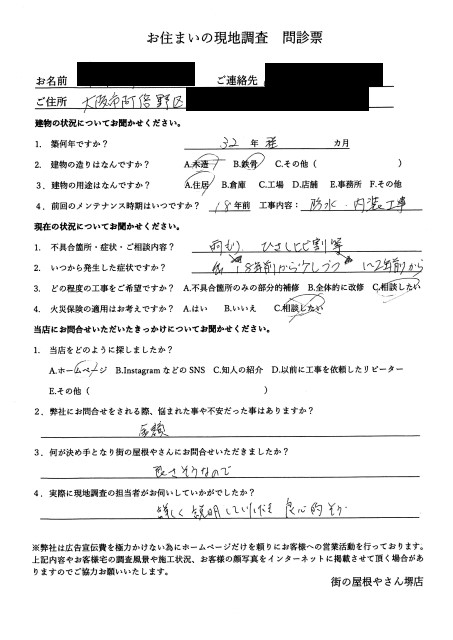 お住まいの現地調査　問診票
お名前　ご連絡先
ご住所　大阪市阿倍野区
建物の状況についてお聞かせください。
1.　築何年ですか？　32 年 程　カ月
2.　建物の造りはなんですか？　A.木造　B.鉄骨　C.その他（　）
3．建物の用途はなんですか？　A.住居　B.倉庫　C.工場　D.店舗　E.事務所　F.その他
4．前回のメンテナンス時期はいつですか？　18年前　工事内容：　防水・内装工事
現在の状況についてお聞かせください。
1.　不具合箇所・症状・ご相談内容？　雨もり　ひさしヒビ割等
2.　いつから発生した症状ですか？　18年前から少しづつ　1~2年前から
3.　どの程度の工事をご希望ですか？　A.不具合箇所のみの部分的補修　B.全体的に改修　C.相談したい
4.　火災保険の適用はお考えですか？　A.はい　B.いいえ　C.相談したい
当店にお問合せいただいたきっかけについてお聞かせください。
1.　当店をどのように探しましたか？
A.ホームページ　B.InstagramなどのSNS　C.知人の紹介　D.以前に工事を依頼したリピーター
E.その他（　）
2．弊社にお問合せをされる際、悩まれた事や不安だった事はありますか？
金額
3．何が決め手となり街の屋根やさんにお問合せいただきましたか？
良さそうなので
4．実際に現地調査の担当者がお伺いしていかがでしたか？
詳しく説明していただき 良心的そう
※弊社は広告宣伝費を極力かけない為にホームページだけを頼りにお客様への営業活動を行っております。
上記内容やお客様宅の調査風景や施工状況、お客様の顔写真をインターネットに掲載させて頂く場合があ
りますのでご協力お願いいたします。
街の屋根やさん堺店